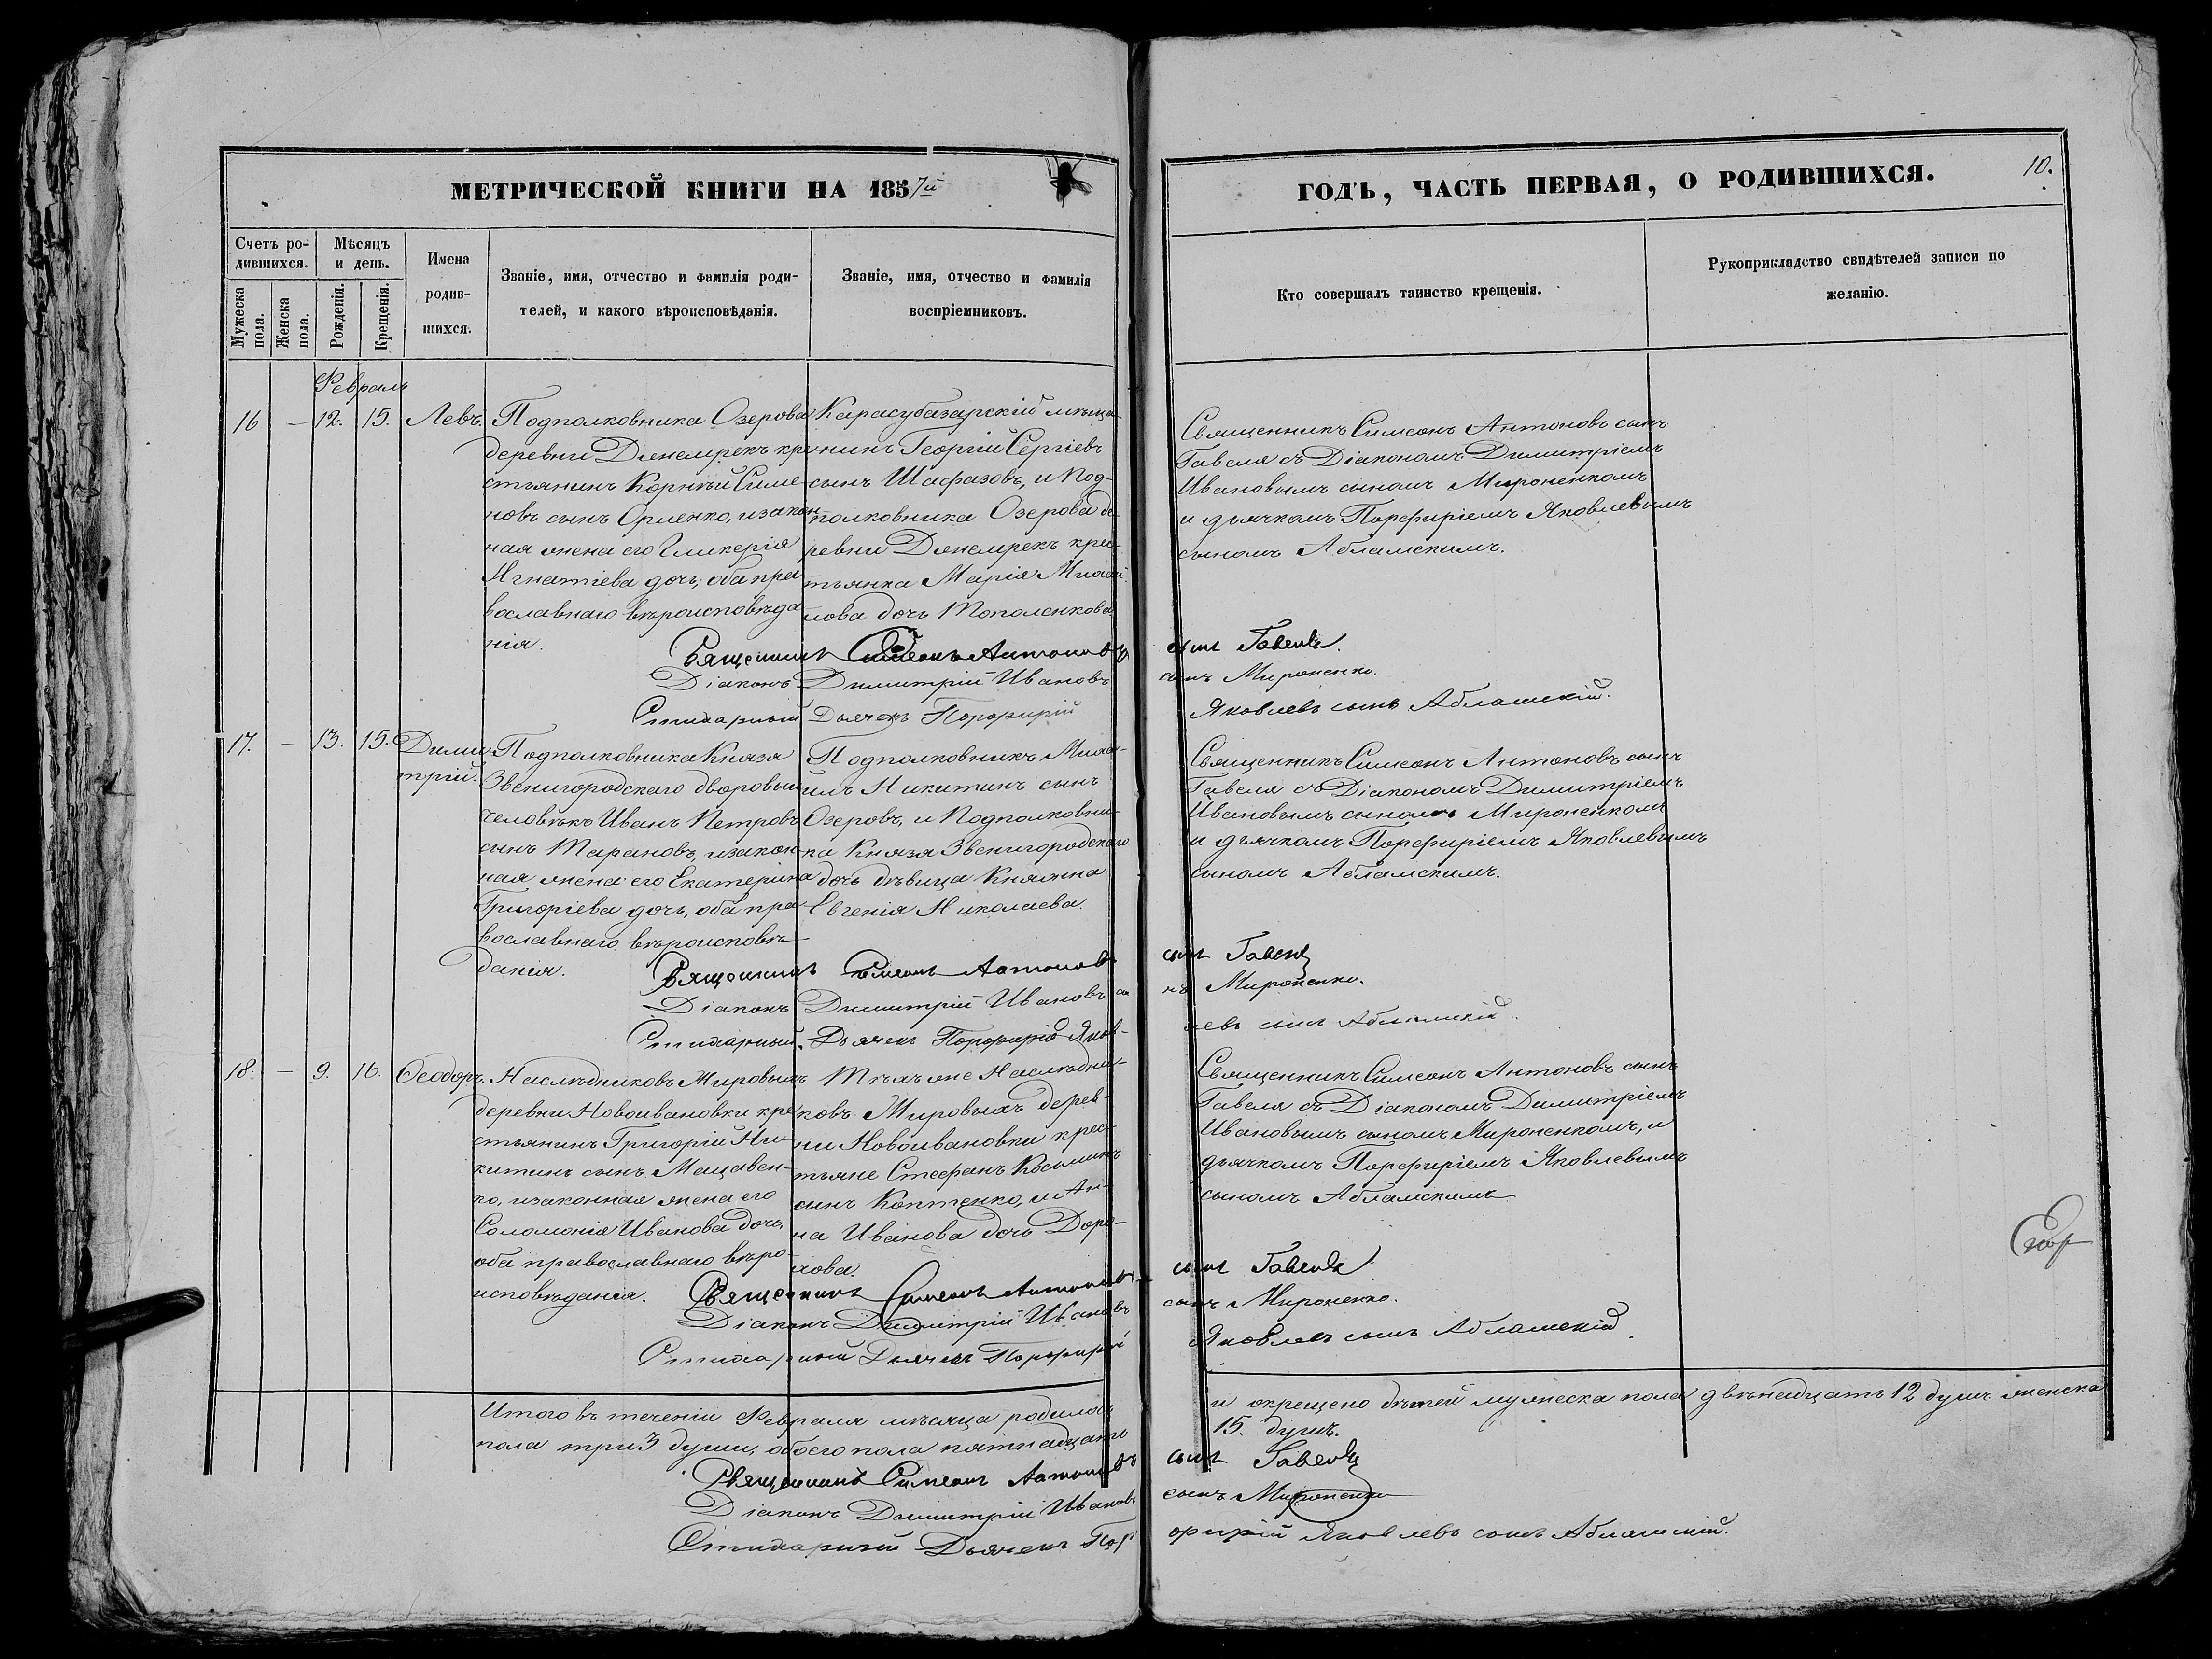 МЕТРИЧЕСКОЙ КНИГИ НА 1857й
ГОДЪ, ЧАСТЬ ПЕРВАЯ, О РОДИВШИХСЯ.
10.
Счетъ ро-
дившихся.
Мужеска
пола.
Женска
пола.
Мѣсяцъ
и день.
Рожденія.
Крещенія.
Имена
родив-
шихся.
Званіе, имя, отчество и фамилія роди-
телей, и какого вѣроисповѣданія.
Званіе, имя, отчество и фамилія
воспріемниковъ.
Кто совершалъ таинство крещенія.
Рукоприкладство свидѣтелей записи по
желанію.
Февраль
16 — 12. 15. Левъ.
Подполковника Озерова
деревни Джемрекъ кре
стьянинъ Корнѣй Симе-
новъ сынъ Орленко, и закон
ная жена его Гликерія
Игнатіева дочь, оба пра-
вославнаго вѣроисповѣда
нія.
Карасубазарскій мѣща-
нинъ Георгій Сергіевъ
сынъ Шафазовъ, и Под-
полковника Озерова де-
ревни Джемрекъ крес-
тьянка Марія Михай
лова дочь Тополенкова
Священникъ Симеонъ Антоновъ сынъ
Гавеля съ Діакономъ Димитріемъ
Ивановымъ сыномъ Мироненкомъ
и дьячкомъ Порфиріемъ Яковлевымъ
сыномъ Абламскимъ.
Священникъ Симеонъ Антоновъ сынъ Гавеля.
Діаконъ Димитрій Ивановъ сынъ Мироненко.
Стихарный Дьячекъ Порфирій Яковлевъ сынъ Абламскій.
17. — 13. 15. Дими
трій.
Подполковника Князя
Звенигородскаго дворовый
человѣкъ Иванъ Петровъ
сынъ Тарановъ, и закон
ная жена его Екатерина
Григоріева дочь, оба пра-
вославнаго вѣроисповѣ-
данія.
Подполковникъ Миха-
илъ Никитинъ сынъ
Озеровъ, и Подполковни-
ка Князя Звенигородскаго
дочь дѣвица Княжна
Евгенія Николаева.
Священникъ Симеонъ Антоновъ сынъ
Гавеля съ Діакономъ Димитріемъ
Ивановымъ сыномъ Мироненкомъ
и дьячкомъ Порфиріемъ Яковлевымъ
сыномъ Абламскимъ.
Священникъ Симеонъ Антоновъ сынъ Гавеля
Діаконъ Димитрій Ивановъ сынъ Мироненко.
Стихарный Дьячекъ Порфирій Яковлевъ сынъ Абламскій.
18. — 9. 16. Ѳеодоръ.
Наслѣдниковъ Мировыхъ
деревни Новоивановки кре
стьянинъ Григорій Ни-
китинъ сынъ Мацавен-
ко, и законная жена его
Соломонія Иванова дочь,
оба православнаго вѣро-
исповѣданія.
Тѣхъ же Наслѣдни-
ковъ Мировыхъ дерев-
ни Новоивановки крес-
тьяне Стефанъ Косминъ
сынъ Коптенко, и Ан-
на Иванова дочь Доро-
хова.
Священникъ Симеонъ Антоновъ сынъ
Гавеля съ Діакономъ Димитріемъ
Ивановымъ сыномъ Мироненкомъ, и
дьячкомъ Порфиріемъ Яковлевымъ
сыномъ Абламскимъ
Священникъ Симеонъ Антоновъ сынъ Гавеля
Діаконъ Димитрій Ивановъ сынъ Мироненко.
Стихарный Дьячекъ Порфирій Яковлевъ сынъ Абламскій.
Итого въ теченіи Февраля мѣсяца родилось и окрещено дѣтей мужеска пола двѣнадцать 12 душъ женска
пола три 3 души, обоего пола пятнадцать 15. душъ.
Священникъ Симеонъ Антоновъ сынъ Гавеля
Діаконъ Димитрій Ивановъ сынъ Мироненко
Стихарный Дьячекъ Порфирій Яковлевъ сынъ Абламскій.